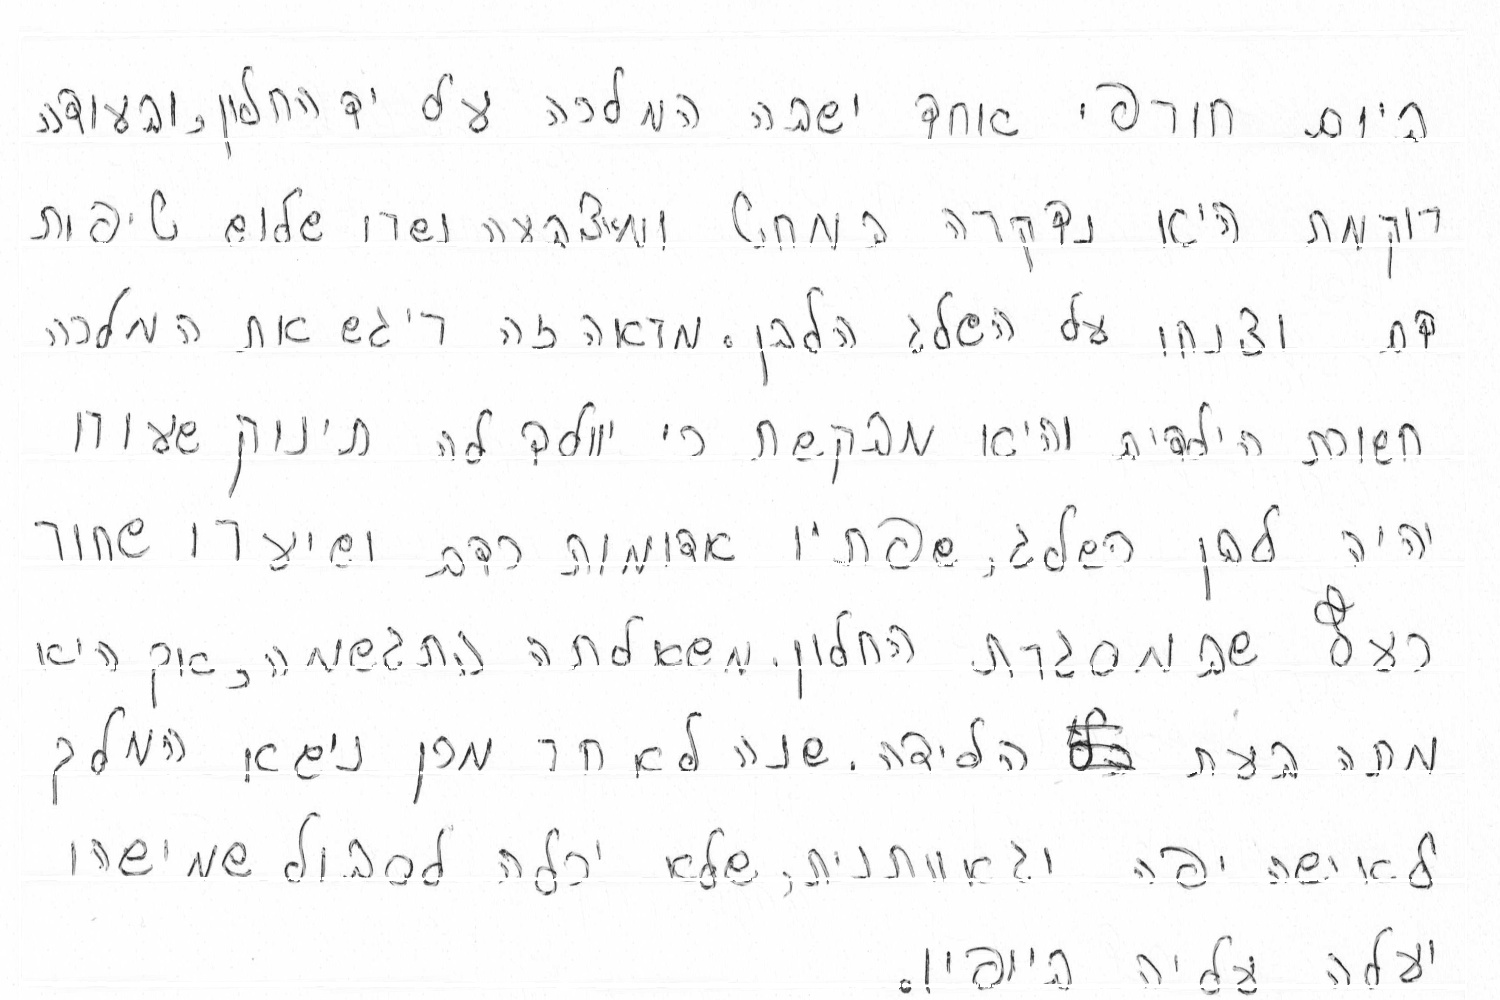 ביום חורפי אחד ישבה המלכה על יד החלון, ובעודה
רוקמת היא נדקרה במחט ומאצבעה נשרו שלוש טיפות
דם וצנחו על השלג הלבן. מראה זה ריגש את המלכה
חשוכת הילדים והיא מבקשת כי יוולד לה תינוק שעורו
יהיה לבן השלג, שפתיו אדומות כדם ושיערו שחור
כעץ שבמסגרת החלון. משאלתה התגשמה, אך היא
מתה בעת הלידה. שנה לאחר מכן נישא המלך
לאישה יפה וגאוותנית, שלא יכלה לסבול שמישהו
יעלה עליה ביופיו.